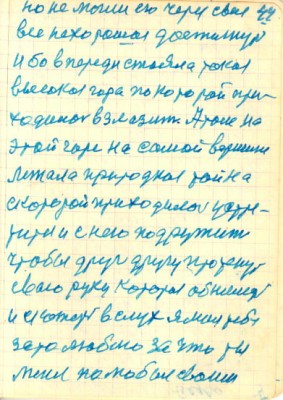 но не могли ею через свои 44
все нехорошоя достигнут
ибо впереди стояла такая
высокая гора по которой при
ходилось взлазить. А то не на
этой горе на самой вершини
лежала природная тайна
с которой приходилось встре-
тится и с нею подружит
чтобы друг другу протянут
свою руку которая обнимет
и скажет вслух я мил тебя
зато люблю за что ты
меня полюбил своим